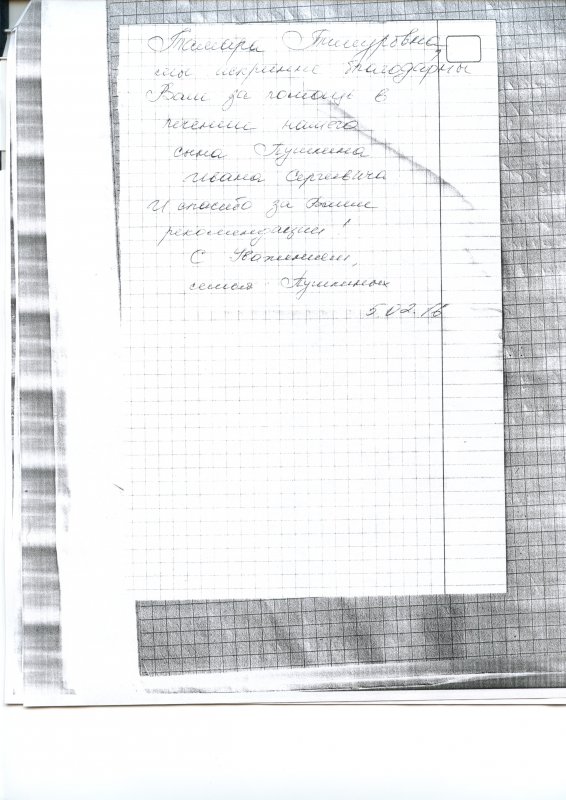 Тамара Тимуровна,
мы искренне благодарны
Вам за помощь в
лечении нашего
сына Пушкина
Ивана Сергеевича
И спасибо за Ваши
рекомендации!
С Уважением,
семья Пушкиных
5.02.16